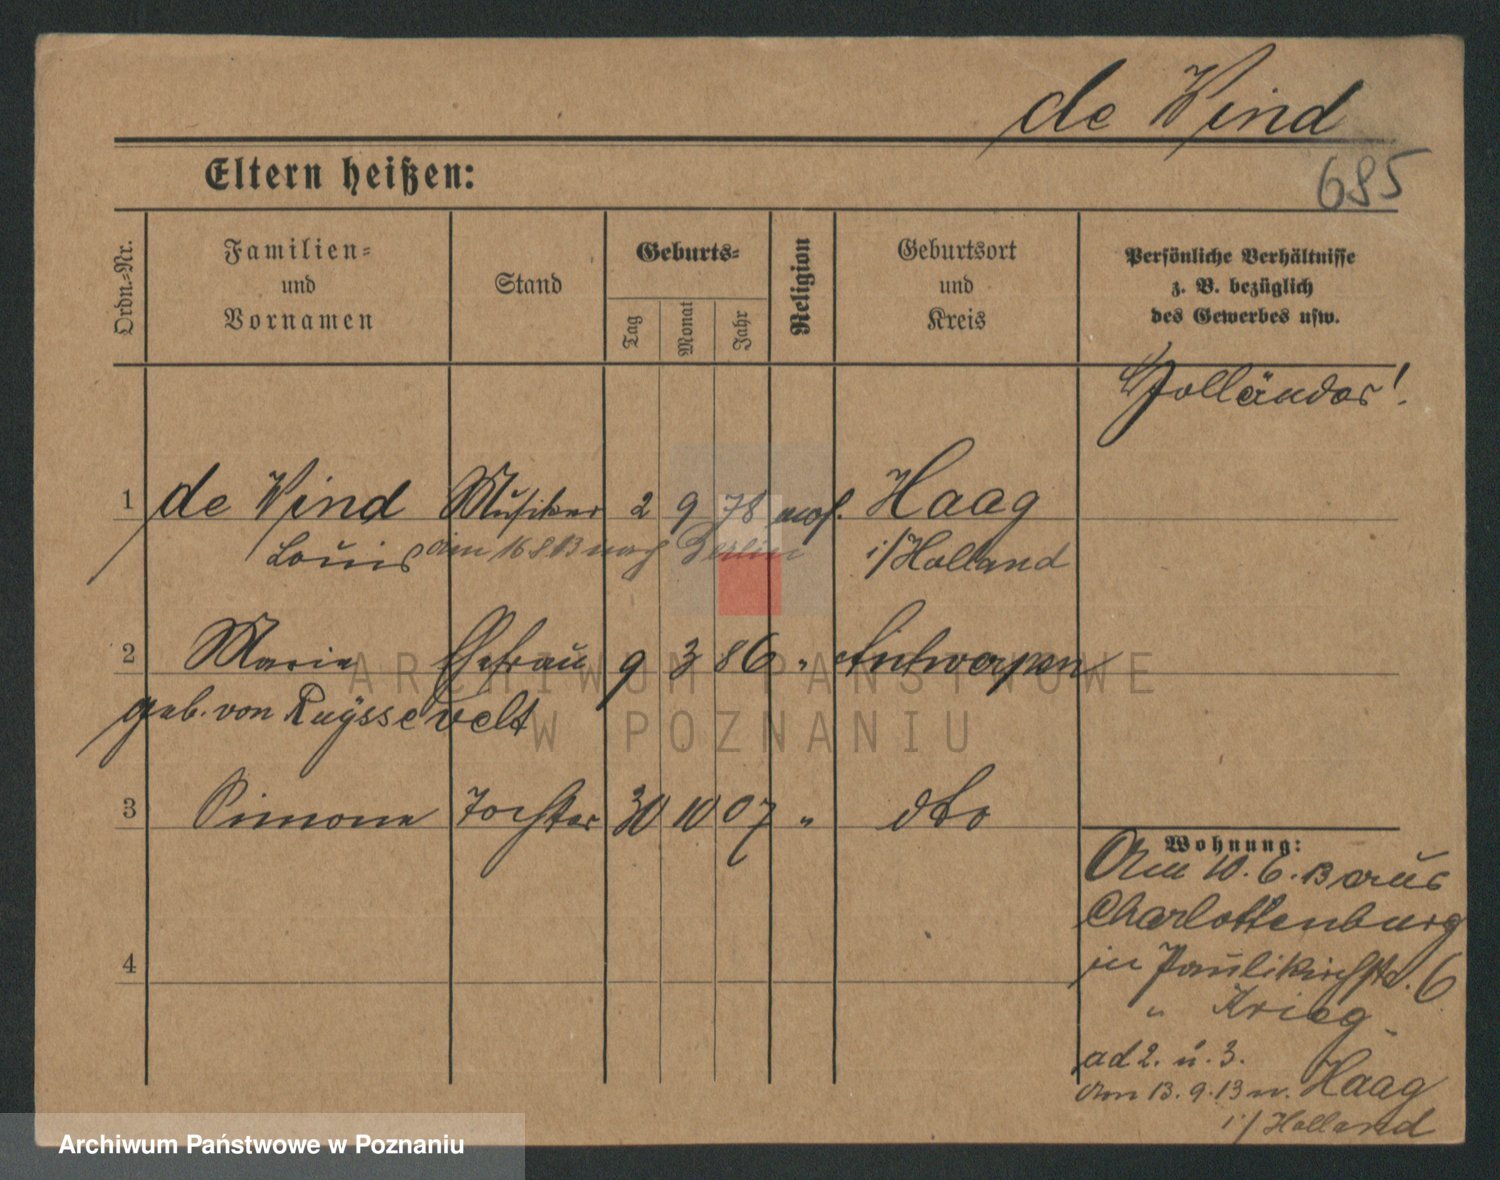 de Wind
685
Eltern heißen:
Ordn.-Nr.
Familien-
und
Vornamen
Stand
Geburts-
Tag
Monat
Jahr
Religion
Geburtsort
und
Kreis
Persönliche Verhältnisse
z. B. bezüglich
des Gewerbes usw.
Holländer!
1 de Wind Musiker 2 9 78 Haag
Louis am 16 8 13 nach Berlin i/Holland
2 Marie Ehefrau 9 3 86 " Antwerpen
geb. von Ruyssevelt
3 Simone Tochter 30 10 07 " dto
4
Wohnung:
Am 10.6.13 aus
Charlottenburg
in Paulikirchstr. 6
" Krieg
ad 2. u. 3.
Am 13.9.13 n. Haag
i/Holland
ARCHIWUM PAŃSTWOWE
W POZNANIU
Archiwum Państwowe w Poznaniu